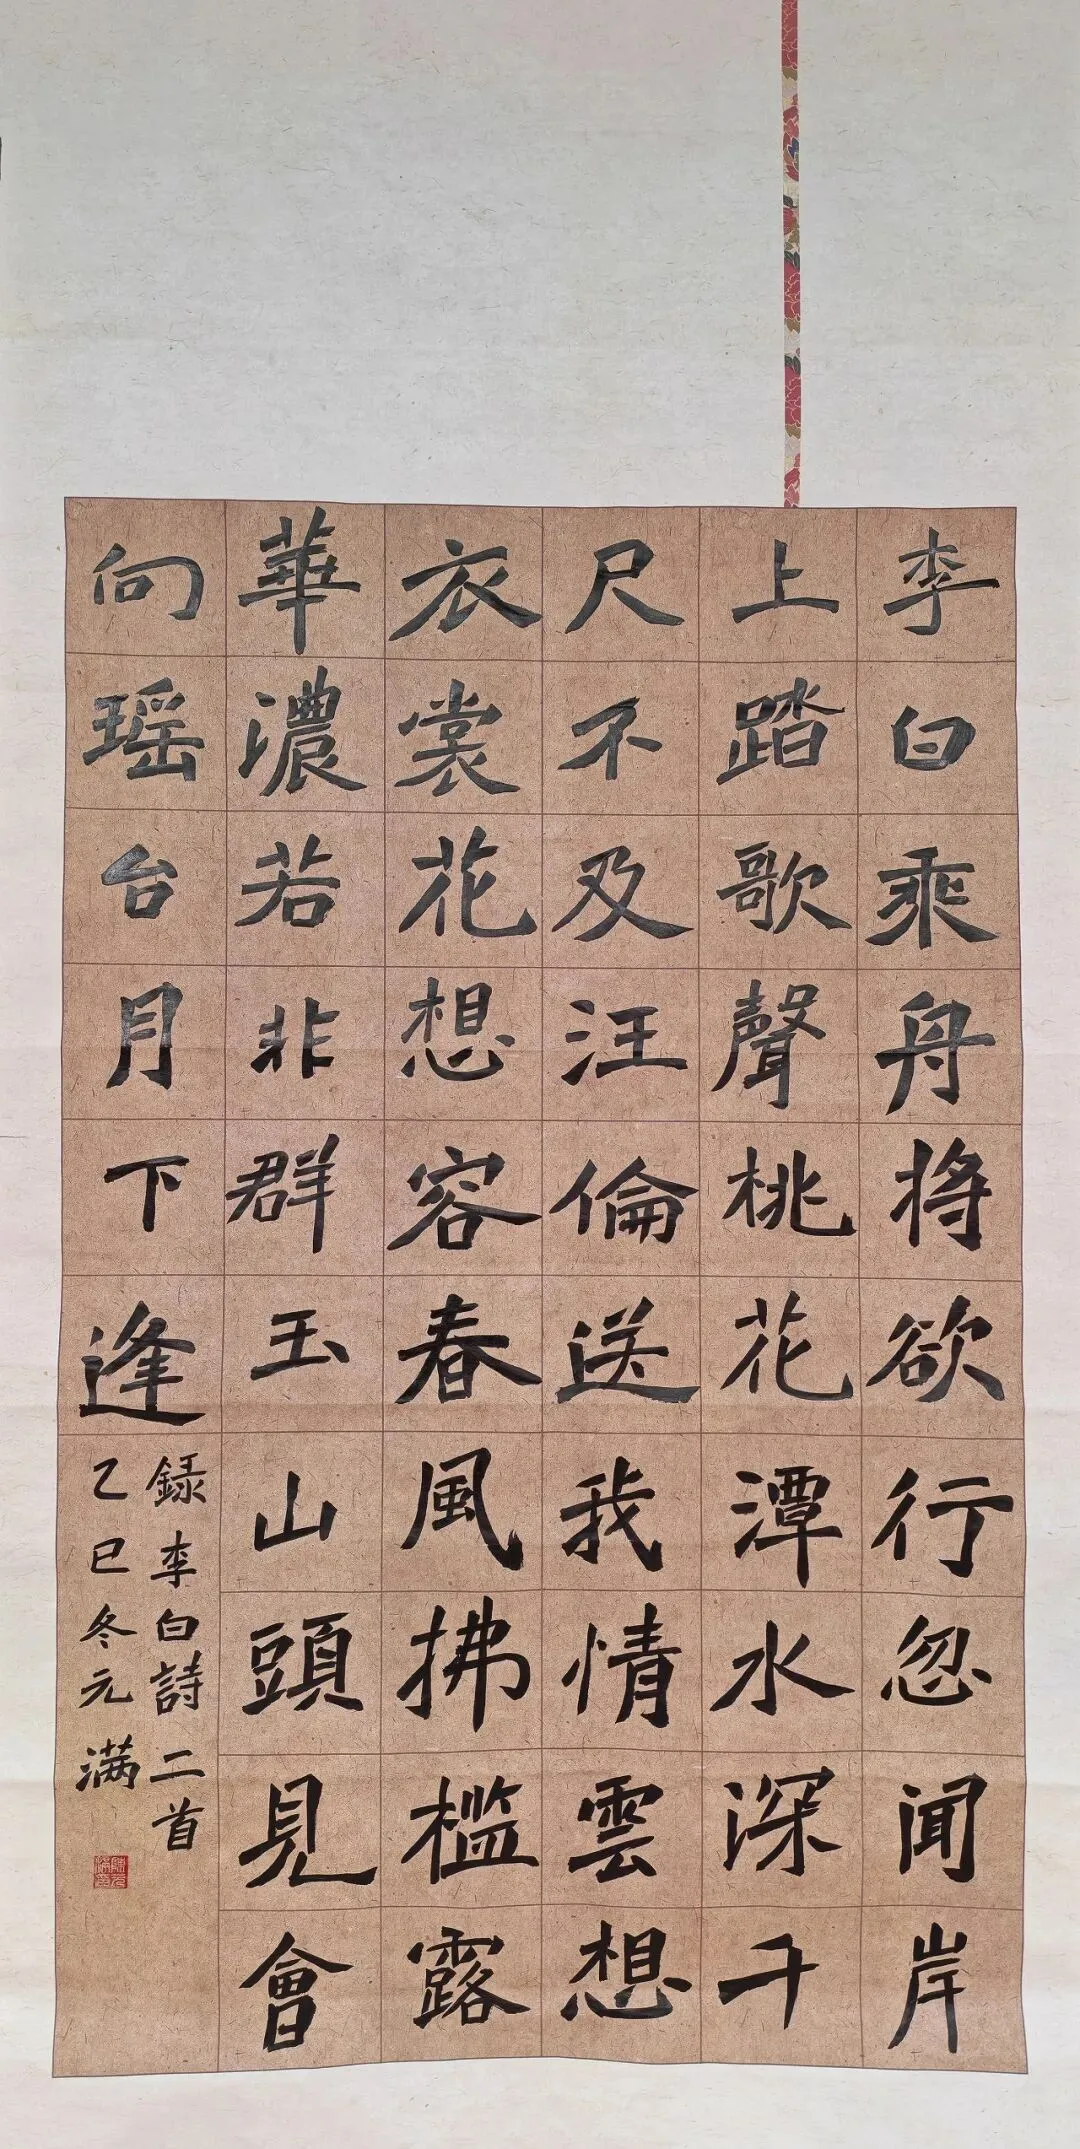 李白乘舟將欲行忽闻岸
上踏歌聲桃花潭水深千
尺不及汪倫送我情雲想
衣裳花想容春風拂槛露
華濃若非群玉山頭見會
向瑶台月下逢
録李白詩二首
乙巳冬元满